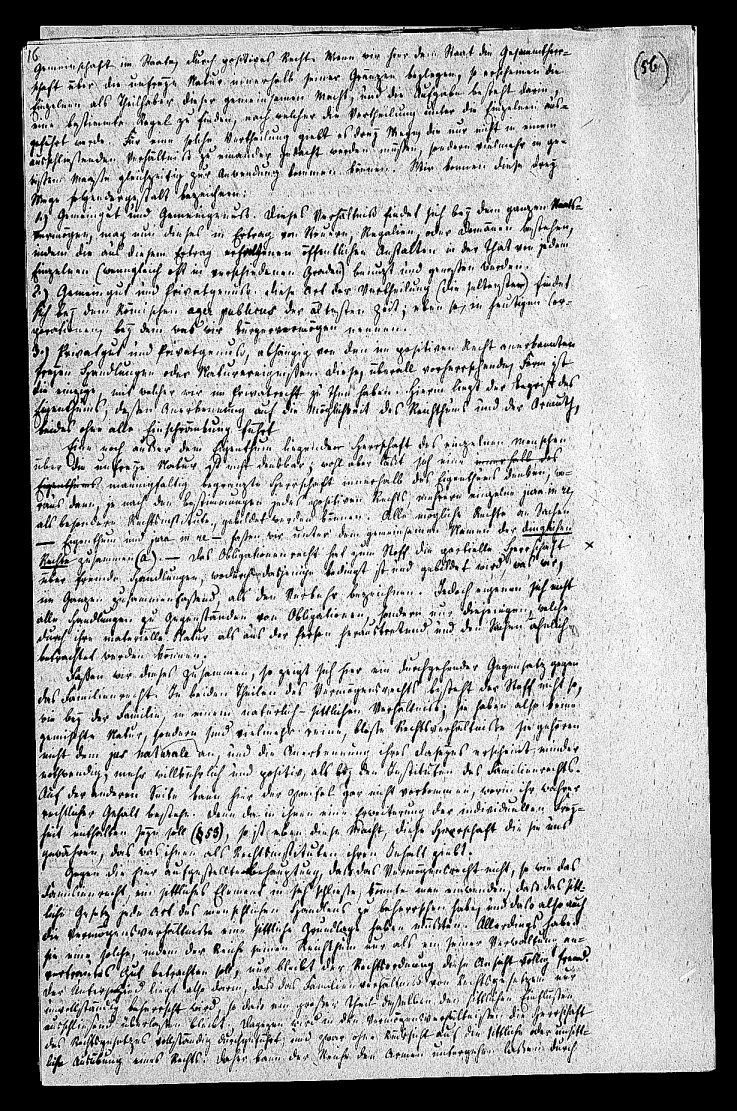 16
(56)
Gemeinschaft im Staate, durch positives Recht. Wenn wir hier dem Staat die Gesammtherr-
schaft über die unfreye Natur innerhalb seiner Gränzen beylegen, so erscheinen die
Einzelnen als Theilhaber dieser gemeinsamen Macht, und die Aufgabe besteht darin,
eine bestimmte Regel zu finden, nach welcher die Vertheilung unter die Einzelnen aus-
geführt werde. Für eine solche Vertheilung giebt es drey Wege, die nur nicht in einem
ausschließenden Verhältniß zu einander gedacht werden müssen, sondern vielmehr in ge-
wissem Maaße gleichzeitig zur Anwendung kommen können. Wir können diese drey
Wege folgendergestalt bezeichnen:
1.) Gemeingut und Gemeingenuß. Dieses Verhältniß findet sich bey dem ganzen Staats-
vermögen, mag nun dieses in Ertrag von Steuern, Regalien, oder Domänen bestehen,
indem die aus diesem Ertrag erhaltenen öffentlichen Anstalten in der That von jedem
Einzelnen (wenngleich oft in verschiedenen Graden) benutzt und genossen werden.
2.) Gemeingut und Privatgenuß. Diese Art der Vertheilung (die seltenste) findet
sich bey dem Römischen ager publicus der ältesten Zeit; eben so, in heutigen Cor-
porationen, bey dem was wir Bürgervermögen nennen.
3.) Privatgut und Privatgenuß, abhängig von den im positiven Recht anerkannten
freyen Handlungen oder Naturereignissen. Diese, überall vorherrschende, Form ist
die einzige, mit welcher wir im Privatrecht zu thun haben. Hierin liegt der Begriff des
Eigenthums, dessen Anerkennung auf die Möglichkeit des Reichthums und der Armuth,
beides ohne alle Einschränkung, führt.
Eine noch außer dem Eigenthum liegende Herrschaft des einzelnen Menschen
über die unfreye Natur ist nicht denkbar; wohl aber läßt sich eine innerhalb des
Eigenthums mannigfaltig begränzte Herrschaft innerhalb des Eigenthums denken, wo-
raus dann, je nach den Bestimmungen jedes positiven Rechts, mehrere einzelne jura in re,
als besondere Rechtsinstitute, gebildet werden können. Alle mögliche Rechte an Sachen
— Eigenthum und jura in re — fassen wir unter dem gemeinsamen Namen der dinglichen
Rechte zusammen (a). — Das Obligationenrecht hat zum Stoff die partielle Herrschaft
über fremde Handlungen, wodurch dasjenige bedingt ist und gebildet wird, was wir,
im Ganzen zusammenfassend, als den Verkehr bezeichnen. Jedoch eignen sich nicht
alle Handlungen zu Gegenständen von Obligationen, sondern nur diejenigen, welche
durch ihre materielle Natur als aus der Person heraustretend und den Sachen ähnlich
betrachtet werden können.
Fassen wir dieses zusammen, so zeigt sich hier ein durchgehender Gegensatz gegen
das Familienrecht. In beiden Theilen des Vermögensrechts besteht der Stoff nicht so,
wie bey der Familie, in einem natürlich-sittlichen Verhältniß; sie haben also keine
gemischte Natur, sondern sind vielmehr reine, bloße Rechtsverhältnisse. Sie gehören
nicht dem jus naturale an, und die Anerkennung ihres Daseyns erscheint minder
nothwendig, mehr willkührlich und positiv, als bey den Instituten des Familienrechts.
Auf der anderen Seite kann hier der Zweifel gar nicht vorkommen, worin ihr wahrer
rechtlicher Gehalt bestehe. Denn da in ihnen eine Erweiterung der individuellen Frey-
heit enthalten seyn soll (§53), so ist eben diese Macht, diese Herrschaft die sie uns
gewähren, das was ihnen als Rechtsinstituten ihren Inhalt giebt.
Gegen die hier aufgestellte Behauptung, daß das Vermögensrecht nicht, so wie das
Familienrecht, ein sittliches Element in sich schließe, könnte man einwenden, daß das sitt-
liche Gesetz jede Art des menschlichen Handelns zu beherrschen habe, und daß also auch
die Vermögensverhältnisse eine sittliche Grundlage haben müßten. Allerdings haben
sie eine solche, indem der Reiche seinen Reichthum nur als ein seiner Verwaltung an-
vertrautes Gut betrachten soll, nur bleibt der Rechtsordnung diese Ansicht völlig fremd.
Der Unterschied liegt also darin, daß das Familienverhältniß von Rechtsgesetzen nur
unvollständig beherrscht wird, so daß ein großer Theil desselben den sittlichen Einflüssen
ausschließend überlassen bleibt. Dagegen wird in den Vermögensverhältnissen die Herrschaft
des Rechtsgesetzes vollständig durchgeführt, und zwar ohne Rücksicht auf die sittliche oder unsitt-
liche Ausübung eines Rechts. Daher kann der Reiche den Armen untergehen lassen durch